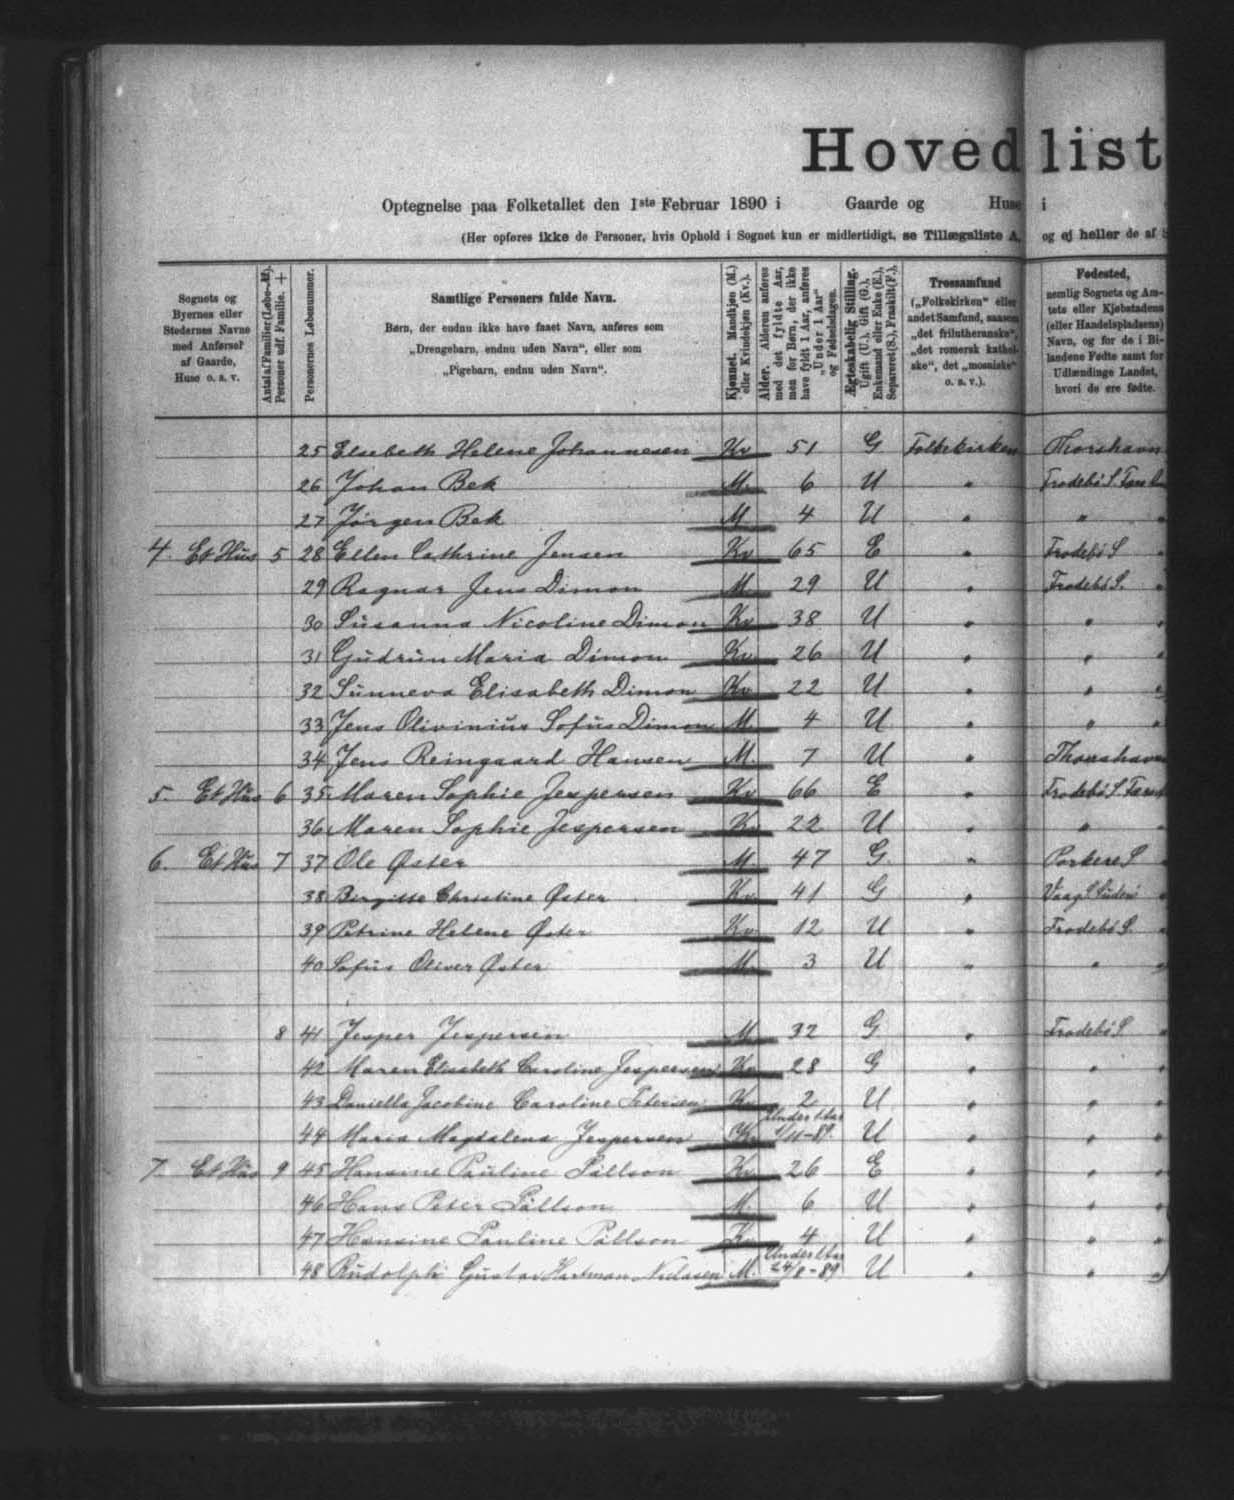 Hovedlist
Optegnelse paa Folketallet den 1ste Februar 1890 i Gaarde og Huse i
(Her opføres ikke de Personer, hvis Ophold i Sognet kun er midlertidigt, se Tillægsliste A, og ej heller de af
Sognets og Byernes eller Stedernes Navne med Anførsel af Gaarde, Huse o. s. v.
Personer udf. Familie. +
Personernes Løbenummer.
Samtlige Personers fulde Navn.
Børn, der endnu ikke have faaet Navn, anføres som
„Drengebarn, endnu uden Navn“, eller som
„Pigebarn, endnu uden Navn“.
Kjønnet. Mandkjøn (M.) eller Kvindekjøn (Kv.).
Alder. Alderen anføres med det fyldte Aar, men for Børn, der ikke have fyldt 1 Aar, anføres „Under 1 Aar“ og Fødselsdagen.
Ægteskabelig Stilling. Ugift (U.), Gift (G.), Enkemand eller Enke (E.), Separeret (S.), Fraskilt (F.).
Trossamfund („Folkekirken“ eller andet Samfund, saasom „det frilutheranske“, „det romersk katholske“, det „mosaiske“ o. s. v.).
Fødested, nemlig Sognets og Amtets eller Kjøbstadens (eller Handelspladsens) Navn, og for de i Bilandene Fødte samt for Udlændinge Landet, hvori de ere fødte.
25 Elsebeth Helene Johannesen Kv 51 G Folkekirken Thorshavn
26 Johan Bek M. 6 U " Frodebø S.
27 Jørgen Bek M 4 U " "
4. Et Hus 5 28 Ellen Cathrine Jensen Kv 65 E " Frodebø S "
29 Ragnar Jens Dimon M. 29 U " Frodebø S. "
30 Susanna Nicoline Dimon Kv 38 U " " "
31 Gudrun Maria Dimon Kv 26 U " " "
32 Sunneva Elisabeth Dimon Kv 22 U " " "
33 Jens Olivinius Sofus Dimon M. 4 U " " "
34 Jens Reingaard Hansen M. 7 U " Thorshavn
5. Et Hus 6 35 Maren Sophie Jespersen Kv 66 E " Frodebø S
36 Maren Sophie Jespersen Kv 22 U " " "
6. Et Hus 7 37 Ole Øster M. 47 G " Porkere S "
38 Birgitte Christine Øster Kv. 41 G " Vaag S
39 Petrine Helene Øster Kv 12 U " Frodebø S. "
40 Sofus Oliver Øster M. 3 U " " "
8 41 Jesper Jespersen M. 32 G " Frodebø S "
42 Maren Elisabeth Caroline Jespersen Kv 28 G " " "
43 Daniella Jacobine Caroline Petersen Kv 2 U " " "
44 Maria Magdalena Jespersen Kv Under 1 Aar /11-89. U " " "
7. Et Hus 9 45 Hansine Pauline Pállson Kv 26 E " " "
46 Hans Peter Pállson M. 6 U " " "
47 Hansine Pauline Pállson Kv 4 U " " "
48 Rudolph Gustav Hartman M. Under 1 Aar 24/8-89 U " " "